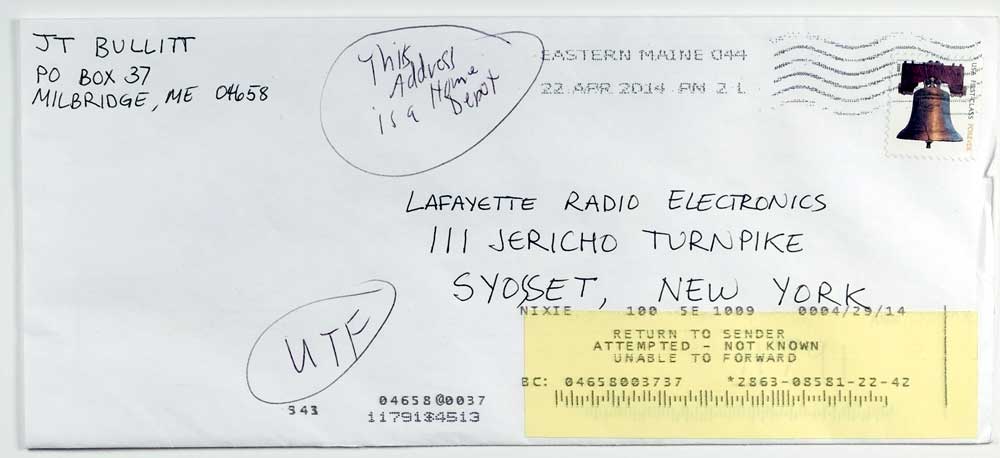 JT BULLITT
PO BOX 37
MILBRIDGE, ME 04658
This
Address
is a Home
Depot
EASTERN MAINE 044
22 APR 2014 PM 2 L
USA FIRST-CLASS FOREVER
LAFAYETTE RADIO ELECTRONICS
111 JERICHO TURNPIKE
SYOSSET, NEW YORK
UTF
NIXIE 100 5E 1009 0004/29/14
RETURN TO SENDER
ATTEMPTED - NOT KNOWN
UNABLE TO FORWARD
BC: 04658003737 *2863-08581-22-42
S43
04658@0037
1179134513